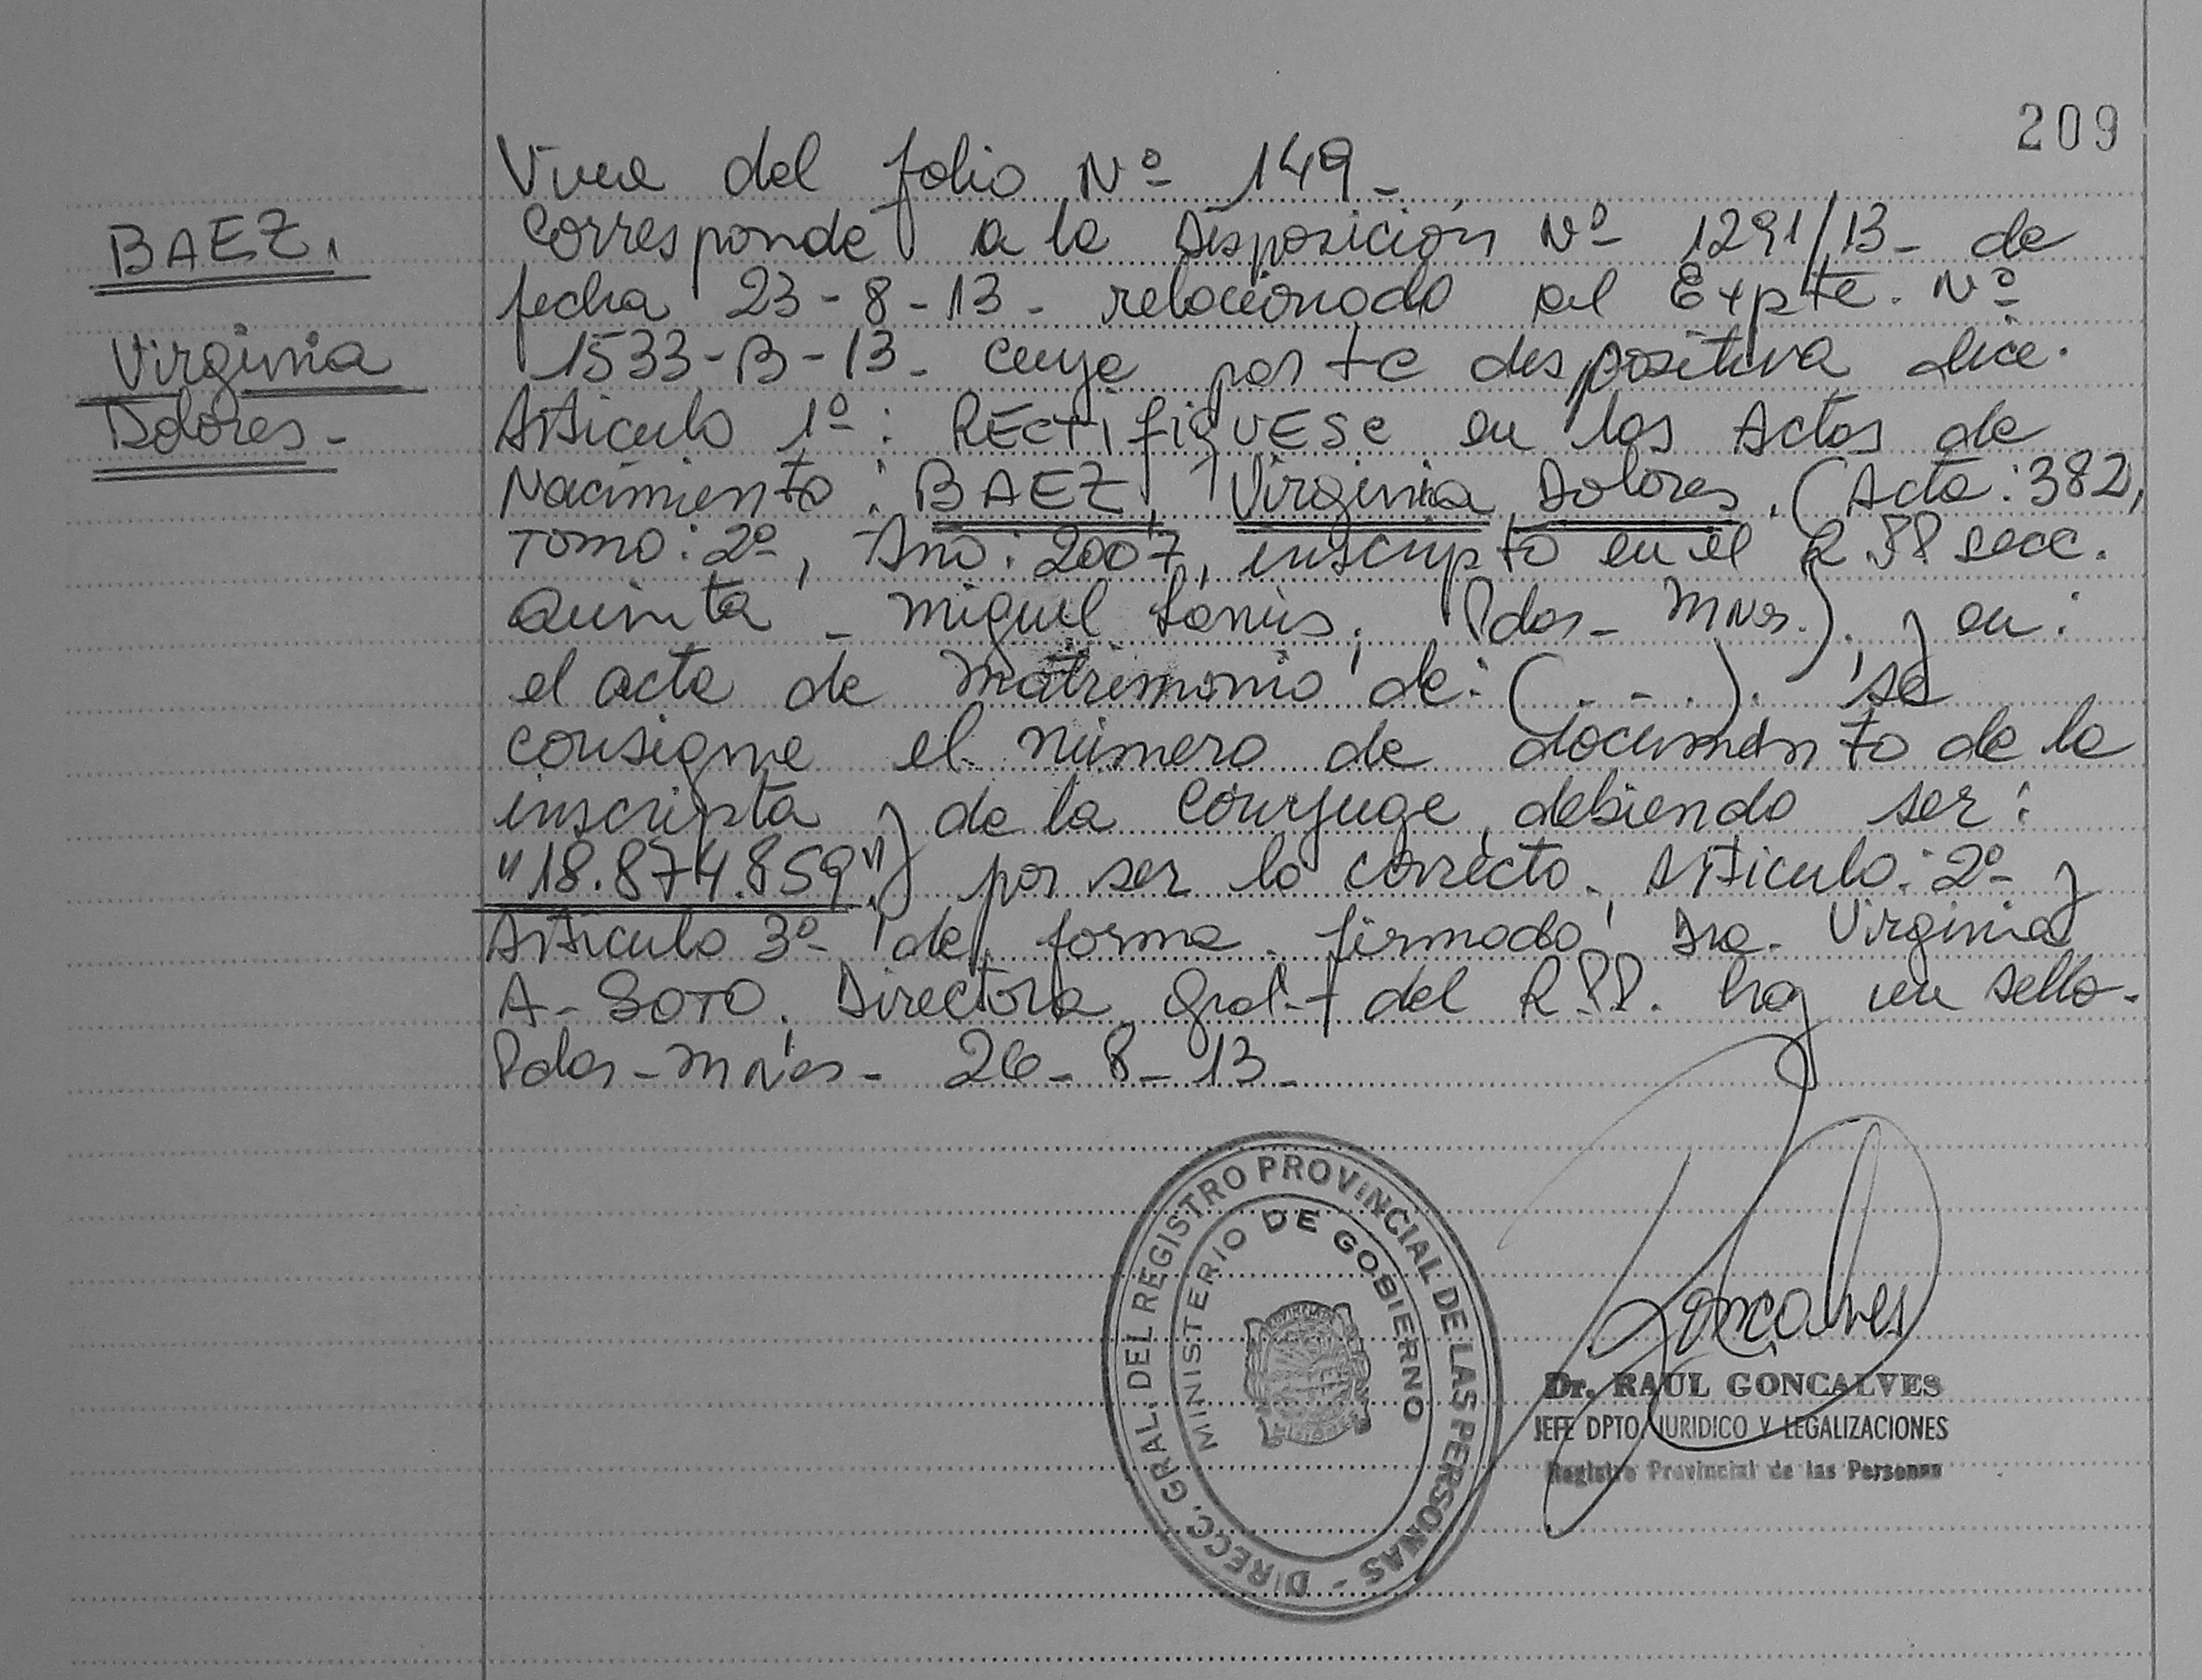 209
Viene del folio Nº 149-
BAEZ,
Virginia
Dolores-
Corresponde a la Disposición Nº 1291/13- de
fecha 23-8-13- relacionado al Expte. Nº
1533-B-13- cuya parte dispositiva dice.
Artículo 1º: RECTIFIQUESE en las Actas de
Nacimiento: BAEZ, Virginia Dolores. (Acta: 382,
Tomo: 2º, Año: 2007, inscripto en el R.PP secc.
Quinta - Miguel Lanús, Pdas- Mnes.). y en:
el acta de Matrimonio de: (. - .). se
consigne el número de documento de la
inscripta y de la conyuge, debiendo ser:
"18.874.859") por ser lo correcto. Artículo: 2º y
Artículo 3º de forma. firmado, Dra. Virginia
A- SOTO. Directora Gral.- del R.PP. hay un sello-
Pdas-Mnes- 26-8-13-
DIRECC. GRAL. DEL REGISTRO PROVINCIAL DE LAS PERSONAS -
MINISTERIO DE GOBIERNO
Goncalves
Dr. RAUL GONCALVES
JEFE DPTO. JURIDICO Y LEGALIZACIONES
Registro Provincial de las Personas